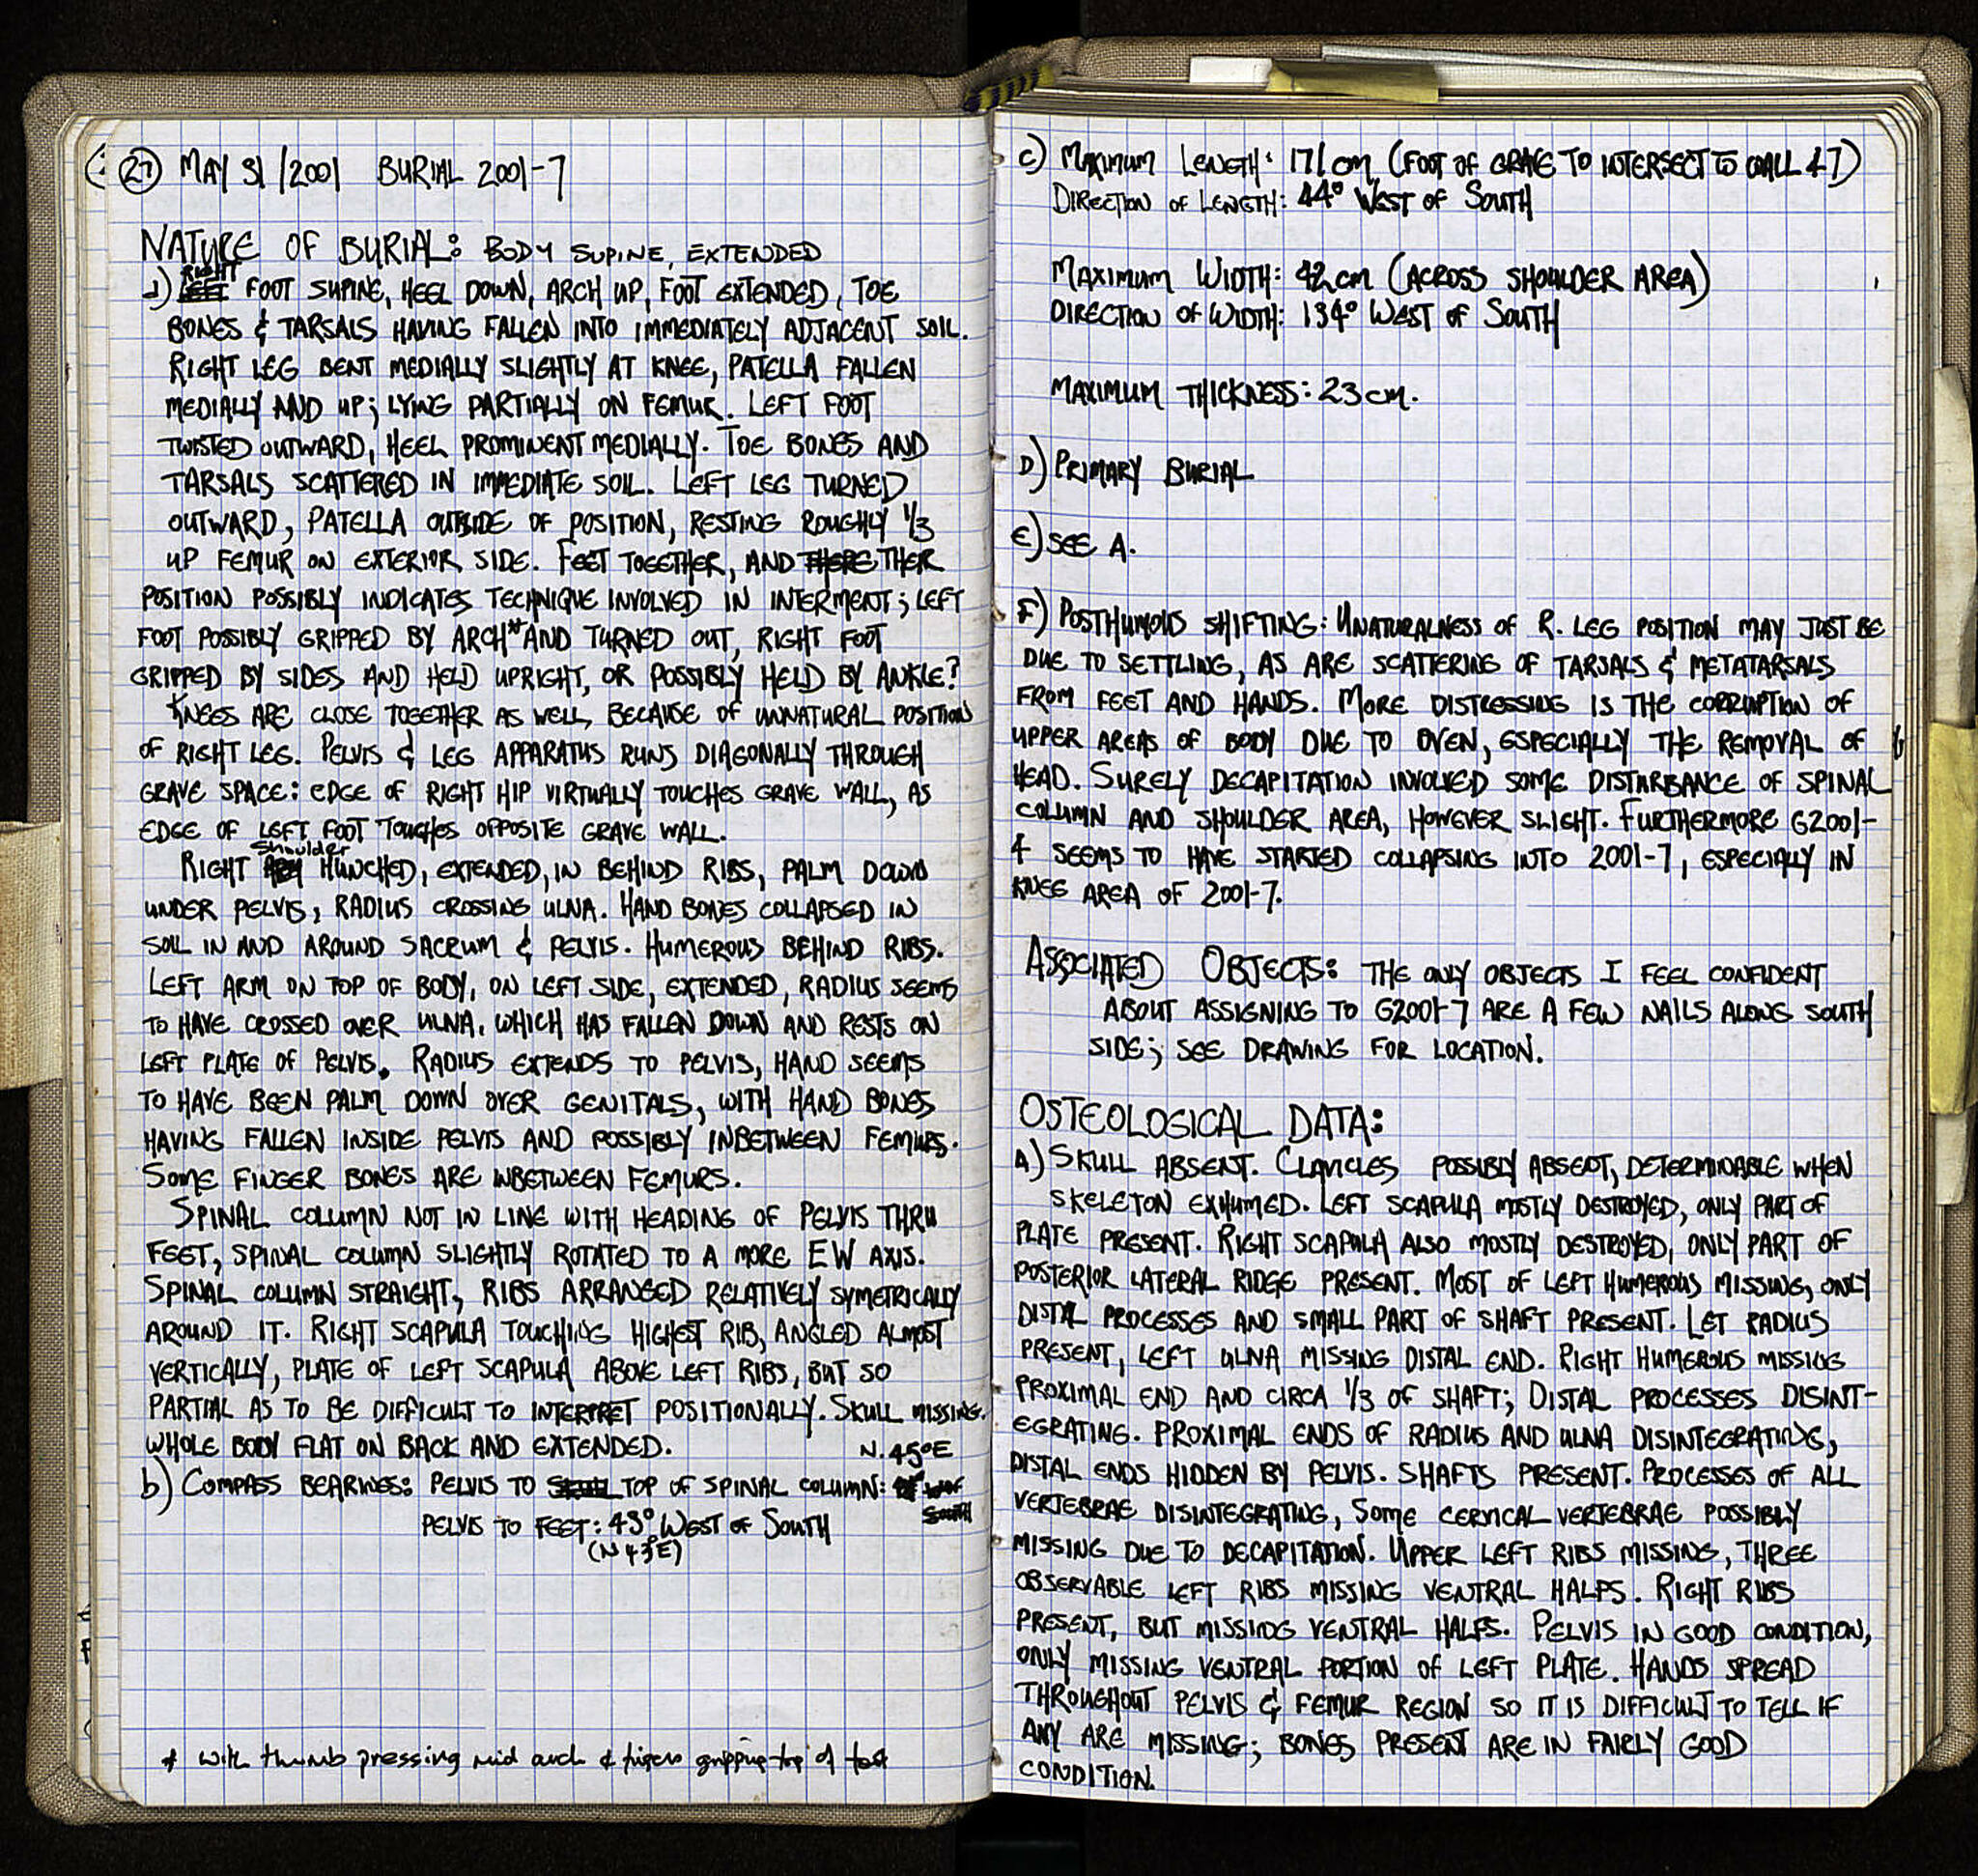 27 MAY 31/2001 BURIAL 2001-7
NATURE OF BURIAL: BODY SUPINE, EXTENDED
RIGHT
a) FOOT SUPINE, HEEL DOWN, ARCH UP, FOOT EXTENDED, TOE
BONES & TARSALS HAVING FALLEN INTO IMMEDIATELY ADJACENT SOIL.
RIGHT LEG BENT MEDIALLY SLIGHTLY AT KNEE, PATELLA FALLEN
MEDIALLY AND UP; LYING PARTIALLY ON FEMUR. LEFT FOOT
TWISTED OUTWARD, HEEL PROMINENT MEDIALLY. TOE BONES AND
TARSALS SCATTERED IN IMMEDIATE SOIL. LEFT LEG TURNED
OUTWARD, PATELLA OUTSIDE OF POSITION, RESTING ROUGHLY 1/3
UP FEMUR ON EXTERIOR SIDE. FEET TOGETHER, AND THERE THER
POSITION POSSIBLY INDICATES TECHNIQUE INVOLVED IN INTERMENT; LEFT
FOOT POSSIBLY GRIPPED BY ARCH* AND TURNED OUT, RIGHT FOOT
GRIPPED BY SIDES AND HELD UPRIGHT, OR POSSIBLY HELD BY ANKLE?
KNEES ARE CLOSE TOGETHER AS WELL, BECAUSE OF UNNATURAL POSITION
OF RIGHT LEG. PELVIS & LEG APPARATUS RUNS DIAGONALLY THROUGH
GRAVE SPACE: EDGE OF RIGHT HIP VIRTUALLY TOUCHES GRAVE WALL, AS
EDGE OF LEFT FOOT TOUCHES OPPOSITE GRAVE WALL.
Shoulder
RIGHT HUNCHED, EXTENDED, IN BEHIND RIBS, PALM DOWN
UNDER PELVIS, RADIUS CROSSING ULNA. HAND BONES COLLAPSED IN
SOIL IN AND AROUND SACRUM & PELVIS. HUMEROUS BEHIND RIBS.
LEFT ARM ON TOP OF BODY, ON LEFT SIDE, EXTENDED, RADIUS SEEMS
TO HAVE CROSSED OVER ULNA, WHICH HAS FALLEN DOWN AND RESTS ON
LEFT PLATE OF PELVIS. RADIUS EXTENDS TO PELVIS, HAND SEEMS
TO HAVE BEEN PALM DOWN OVER GENITALS, WITH HAND BONES
HAVING FALLEN INSIDE PELVIS AND POSSIBLY INBETWEEN FEMURS.
SOME FINGER BONES ARE INBETWEEN FEMURS.
SPINAL COLUMN NOT IN LINE WITH HEADING OF PELVIS THRU
FEET, SPINAL COLUMN SLIGHTLY ROTATED TO A MORE EW AXIS.
SPINAL COLUMN STRAIGHT, RIBS ARRANGED RELATIVELY SYMETRICALLY
AROUND IT. RIGHT SCAPULA TOUCHING HIGHEST RIB, ANGLED ALMOST
VERTICALLY, PLATE OF LEFT SCAPULA ABOVE LEFT RIBS, BUT SO
PARTIAL AS TO BE DIFFICULT TO INTERPRET POSITIONALLY. SKULL MISSING.
WHOLE BODY FLAT ON BACK AND EXTENDED. N.45°E
b) COMPASS BEARINGS: PELVIS TO TOP OF SPINAL COLUMN:
South
PELVIS TO FEET: 43° WEST OF SOUTH
(N43°E)
* with thumb pressing mid arch & fingers gripping top of foot
C) MAXIMUM LENGTH: 171cm (FOOT OF GRAVE TO INTERSECT TO WALL 47)
DIRECTION OF LENGTH: 44° WEST OF SOUTH
MAXIMUM WIDTH: 42cm (ACROSS SHOULDER AREA)
DIRECTION OF WIDTH: 134° WEST OF SOUTH
MAXIMUM THICKNESS: 23cm.
D) PRIMARY BURIAL
E) SEE A.
F) POSTHUMOUS SHIFTING: UNATURALNESS OF R. LEG POSITION MAY JUST BE
DUE TO SETTLING, AS ARE SCATTERING OF TARSALS & METATARSALS
FROM FEET AND HANDS. MORE DISTRESSING IS THE CORRUPTION OF
UPPER AREAS OF BODY DUE TO OVEN, ESPECIALLY THE REMOVAL OF
HEAD. SURELY DECAPITATION INVOLVED SOME DISTURBANCE OF SPINAL
COLUMN AND SHOULDER AREA, HOWEVER SLIGHT. FURTHERMORE G2001-
4 SEEMS TO HAVE STARTED COLLAPSING INTO 2001-7, ESPECIALLY IN
KNEE AREA OF 2001-7.
ASSOCIATED OBJECTS: THE ONLY OBJECTS I FEEL CONFIDENT
ABOUT ASSIGNING TO G2001-7 ARE A FEW NAILS ALONG SOUTH
SIDE; SEE DRAWING FOR LOCATION.
OSTEOLOGICAL DATA:
A) SKULL ABSENT. CLAVICLES POSSIBLY ABSENT, DETERMINABLE WHEN
SKELETON EXHUMED. LEFT SCAPULA MOSTLY DESTROYED, ONLY PART OF
PLATE PRESENT. RIGHT SCAPULA ALSO MOSTLY DESTROYED, ONLY PART OF
POSTERIOR LATERAL RIDGE PRESENT. MOST OF LEFT HUMEROUS MISSING, ONLY
DISTAL PROCESSES AND SMALL PART OF SHAFT PRESENT. LET RADIUS
PRESENT, LEFT ULNA MISSING DISTAL END. RIGHT HUMEROUS MISSING
PROXIMAL END AND CIRCA 1/3 OF SHAFT; DISTAL PROCESSES DISINT-
EGRATING. PROXIMAL ENDS OF RADIUS AND ULNA DISINTEGRATING,
DISTAL ENDS HIDDEN BY PELVIS. SHAFTS PRESENT. PROCESSES OF ALL
VERTEBRAE DISINTEGRATING, SOME CERVICAL VERTEBRAE POSSIBLY
MISSING DUE TO DECAPITATION. UPPER LEFT RIBS MISSING, THREE
OBSERVABLE LEFT RIBS MISSING VENTRAL HALFS. RIGHT RIBS
PRESENT, BUT MISSING VENTRAL HALFS. PELVIS IN GOOD CONDITION,
ONLY MISSING VENTRAL PORTION OF LEFT PLATE. HANDS SPREAD
THROUGHOUT PELVIS & FEMUR REGION SO IT IS DIFFICULT TO TELL IF
ANY ARE MISSING; BONES PRESENT ARE IN FAIRLY GOOD
CONDITION.